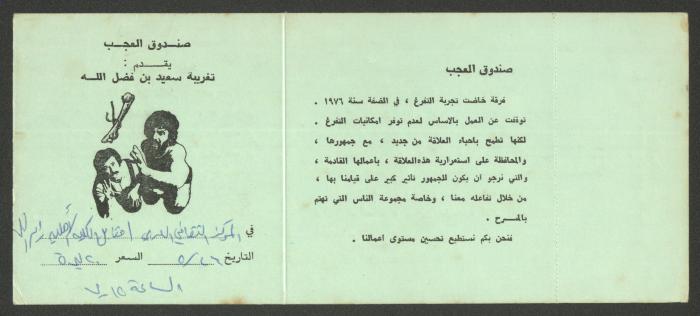 صندوق العجب
يقدم :
تغريبة سعيد بن فضل الله
في المركز الثقافي
التاريخ ٥/٢٦ السعر ٢٠ ليرة
الساعة
صندوق العجب
فرقة خاضت تجربة التفرغ ، في الضفة سنة ١٩٧٦ .
توقفت عن العمل بالاساس لعدم توفر امكانيات التفرغ .
لكنها تطمح باحياء العلاقة من جديد ، مع جمهورها ،
والمحافظة على استمرارية هذه العلاقة ، بأعمالها القادمة ،
والتي نرجو ان يكون للجمهور تأثير كبير على قيامنا بها ،
من خلال تفاعله معنا ، وخاصة مجموعة الناس التي تهتم
بالمسرح .
فنحن بكم نستطيع تحسين مستوى اعمالنا .